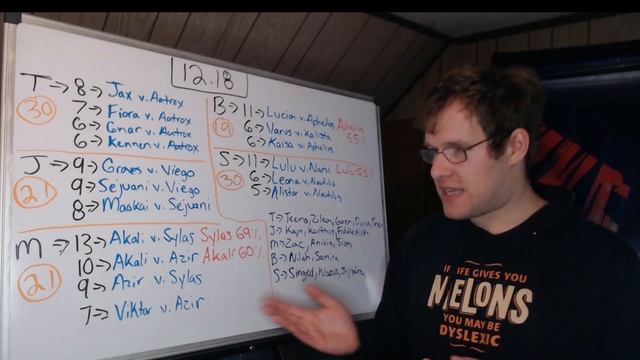 12.18
T → 8 → Jax v. Aatrox
30 7 → Fiora v. Aatrox
6 → Gnar v. Aatrox
6 → Kennen v. Aatrox
J → 9 → Graves v. Viego
21 9 → Sejuani v. Viego
8 → Maokai v. Sejuani
M → 13 → Akali v. Sylas Sylas 69%
21 10 → Akali v. Azir Akali 60%
9 → Azir v. Sylas
7 → Viktor v. Azir
B → 11 → Lucian v. Aphelios Aphelios 55%
19 6 → Varus v. Kalista
6 → Kaisa v. Aphelios
S → 11 → Lulu v. Nami Lulu 55%
30 6 → Leona v. Nautilus
5 → Alistar v. Nautilus
T → Teemo, Zilean, Gwen,
J → Kayn, Karthus, Fiddlesticks
M → Zac, Anivia, Sion
B → Nilah, Samira
S → Singed,
IF LIFE GIVES YOU
MELONS
YOU MAY BE
DYSLEXIC